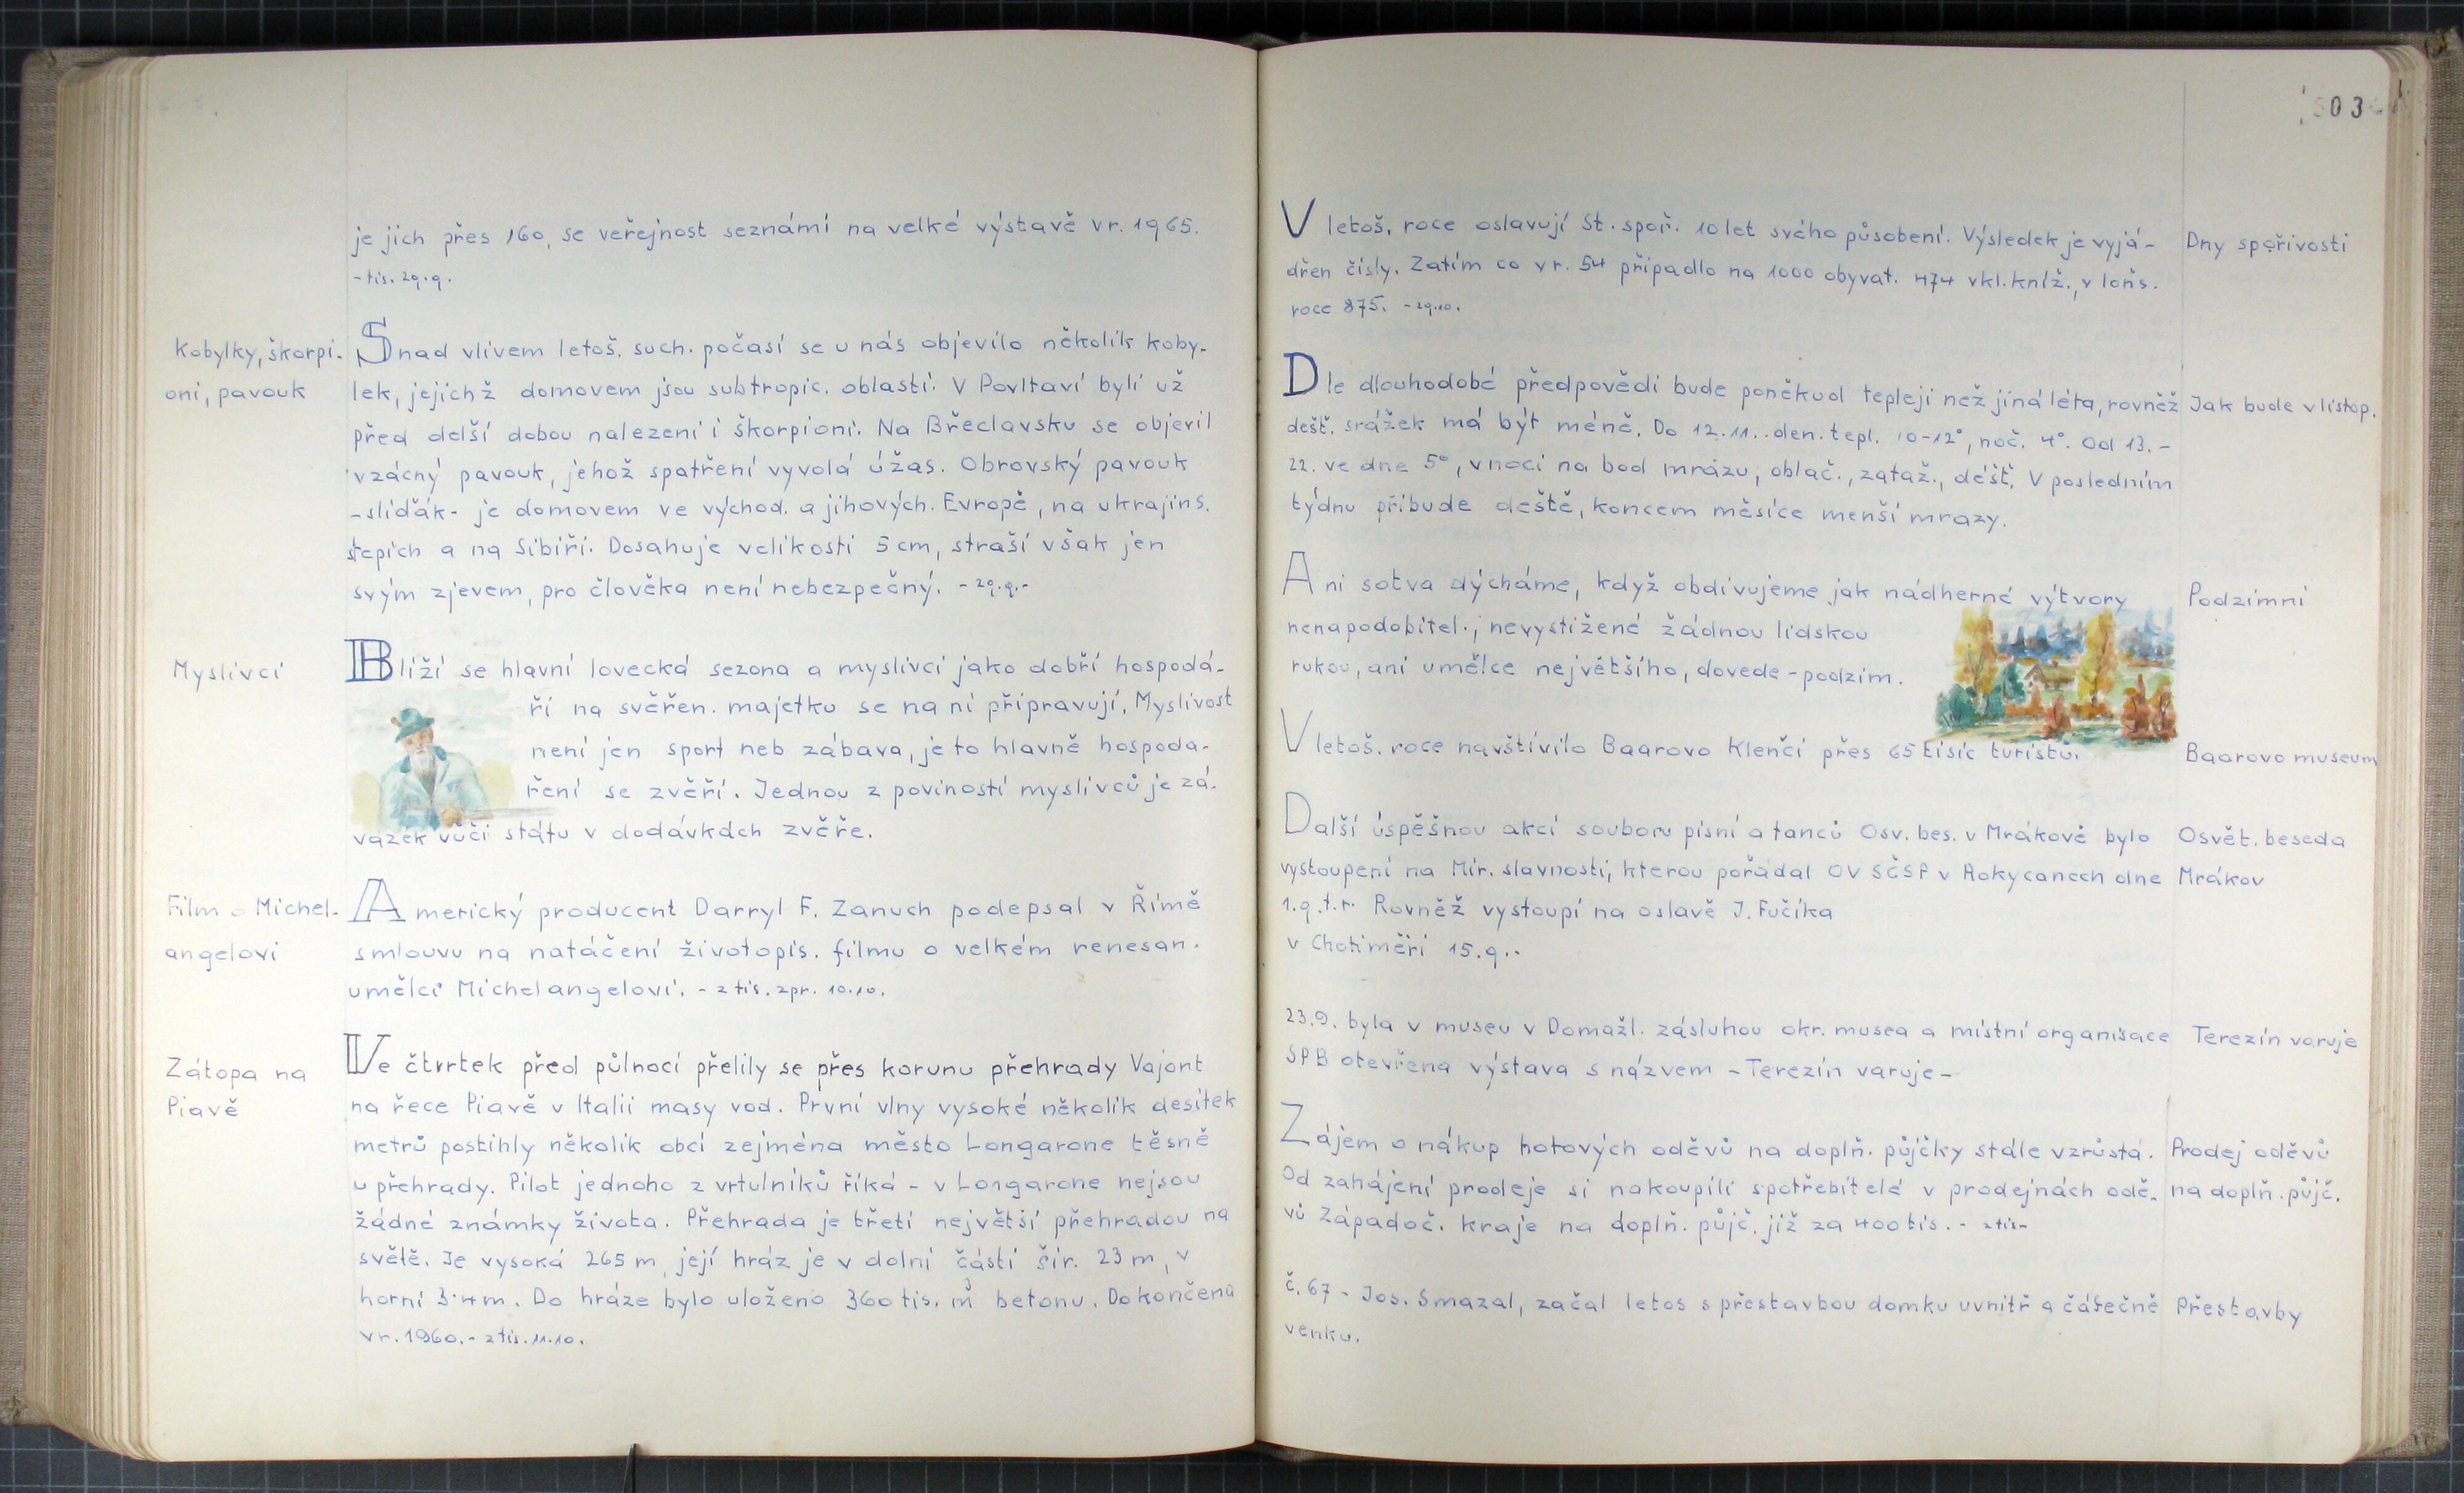 je jich přes 160, se veřejnost seznámí na velké výstavě v r. 1965.
- tis. 29.9.
Kobylky, škorpi-
oni, pavouk
Snad vlivem letoš. such. počasí se u nás objevilo několik koby-
lek, jejichž domovem jsou subtropic. oblasti. V Povltaví byli už
před delší dobou nalezeni i škorpioni. Na Břeclavsku se objevil
vzácný pavouk, jehož spatření vyvolá úžas. Obrovský pavouk
- slíďák - je domovem ve východ. a jihových. Evropě, na ukrajins.
stepích a na Sibiři. Dosahuje velikosti 5 cm, straší však jen
svým zjevem, pro člověka není nebezpečný. - 29.9.-
Myslivci
Blíží se hlavní lovecká sezona a myslivci jako dobří hospodá-
ři na svěřen. majetku se na ni připravují. Myslivost
není jen sport neb zábava, je to hlavně hospoda-
ření se zvěří. Jednou z poviností myslivců je zá-
vazek vůči státu v dodávkách zvěře.
Film o Michel-
angelovi
Americký producent Darryl F. Zanuch podepsal v Římě
smlouvu na natáčení životopis. filmu o velkém renesan.
umělci Michelangelovi. - z tis. zpr. 10.10.
Zátopa na
Piavě
Ve čtvrtek před půlnocí přelily se přes korunu přehrady Vajont
na řece Piavě v Italii masy vod. První vlny vysoké několik desítek
metrů postihly několik obcí zejména město Longarone těsně
u přehrady. Pilot jednoho z vrtulníků říká - v Longarone nejsou
žádné známky života. Přehrada je třetí největší přehradou na
světě. Je vysoká 265 m, její hráz je v dolní části šir. 23 m, v
horní 3.4 m. Do hráze bylo uloženo 360 tis. m³ betonu. Dokončena
v r. 1960. - z tis. 11.10.
03
V letoš. roce oslavují St. spoř. 10 let svého působení. Výsledek je vyjá-
dřen čísly. Zatím co v r. 54 připadlo na 1000 obyvat. 474 vkl. kníž., v loňs.
roce 875. - 29.10.
Dny spořivosti
Dle dlouhodobé předpovědi bude poněkud tepleji než jiná léta, rovněž
dešť. srážek má být méně. Do 12.11. den. tepl. 10-12°, noč. 4°. Od 13. -
22. ve dne 5°, v noci na bod mrazu, oblač., zataž., déšť. V posledním
týdnu přibude deště, koncem měsíce menší mrazy.
Jak bude v listop.
Ani sotva dýcháme, když obdivujeme jak nádherné výtvory
nenapodobitel., nevystižené žádnou lidskou
rukou, ani umělce největšího, dovede - podzim.
Podzimní
V letoš. roce navštívilo Baarovo Klenčí přes 65 tisíc turistů.
Baarovo museum
Další úspěšnou akcí souboru písní a tanců Osv. bes. v Mrákově bylo
vystoupení na Mír. slavnosti, kterou pořádal OV SČSP v Rokycanech dne
1.9. t.r. Rovněž vystoupí na oslavě J. Fučíka
v Chotiměři 15.9..
Osvět. beseda
Mrákov
23.9. byla v museu v Domažl. zásluhou okr. musea a místní organisace
SPB otevřena výstava s názvem - Terezín varuje -
Terezín varuje
Zájem o nákup hotových oděvů na doplň. půjčky stále vzrůstá.
Od zahájení prodeje si nakoupili spotřebitelé v prodejnách odě-
vů Západoč. kraje na doplň. půjč. již za 400 tis. - z tis -
Prodej oděvů
na doplň. půjč.
č. 67 - Jos. Smazal, začal letos s přestavbou domku uvnitř a částečně
venku.
Přestavby